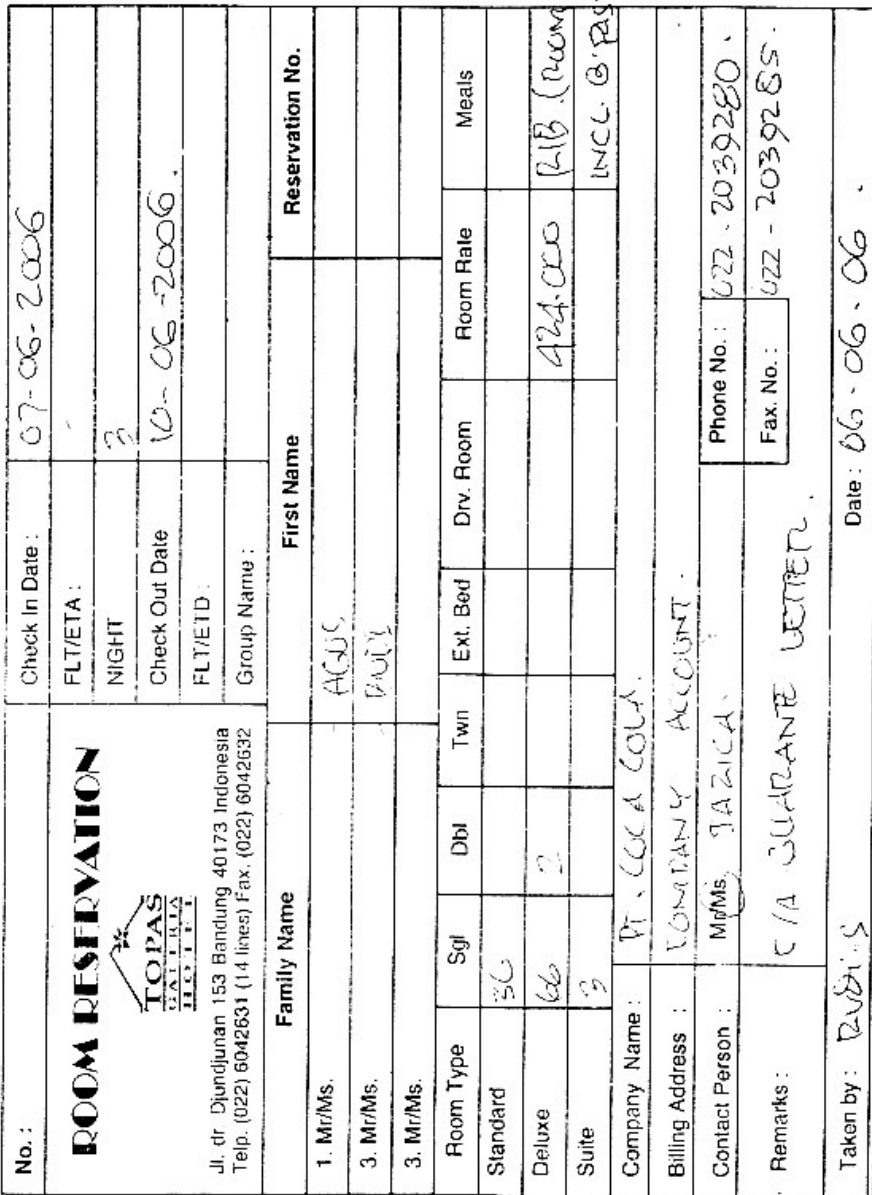 No. :
ROOM RESERVATION
TOPAS
GALERIA
HOTEL
Jl. dr Djundjunan 153 Bandung 40173 Indonesia
Telp. (022) 6042631 (14 lines) Fax. (022) 6042632
Check In Date : 07-06-2006
FLT/ETA :
NIGHT 3
Check Out Date 10-06-2006.
FLT/ETD :
Group Name :
Family Name First Name Reservation No.
1. Mr/Ms. AGUS
3. Mr/Ms.
3. Mr/Ms.
Room Type Sgl Dbl Twn Ext. Bed Drv. Room Room Rate Meals
Standard 36
Deluxe 66 2 424.000 R/B (ROOM
Suite 3 INCL. B'FAS
Company Name : PT. COCA COLA.
Billing Address : COMPANY ACCOUNT.
Contact Person : Mr/Ms. Phone No. : 022 - 2039280.
Fax. No. : 022 - 2039285.
Remarks : C/A GUARANTE LETTER.
Taken by : Date : 06-06-06.